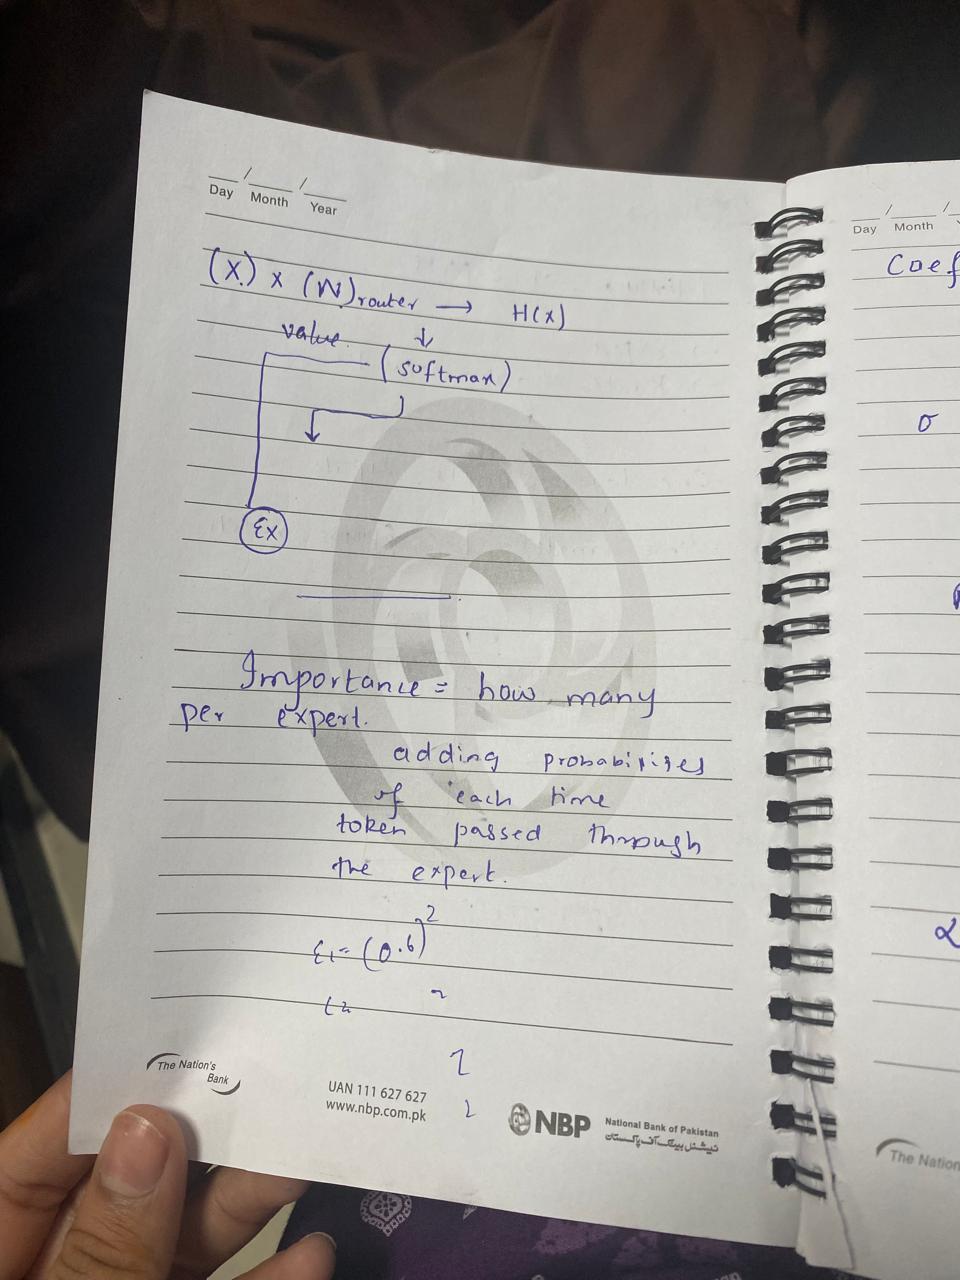 Day / Month / Year
(X) x (W)router → H(x)
value. ↓
(softmax)
Ex
Importance = how many
per expert.
adding probabirises
of each time
token passed through
the expert.
E1 = (0.6)²
2
2
The Nation's
Bank
UAN 111 627 627
www.nbp.com.pk
NBP
National Bank of Pakistan
نیشنل بینک آف پاکستان
Day / Month /
Coef
σ
α
The Nation